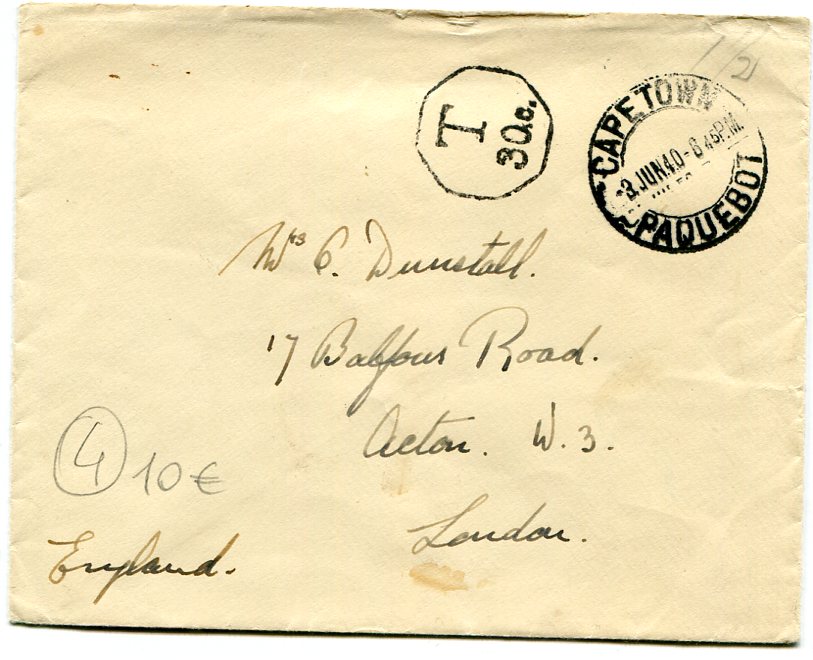 1/2
T
30c.
CAPETOWN
3 JUN 40 - 6 45 P.M.
PAQUEBOT
Mrs C. Dunstall.
17 Balfour Road.
Acton. W. 3.
London.
England.
4 10 €